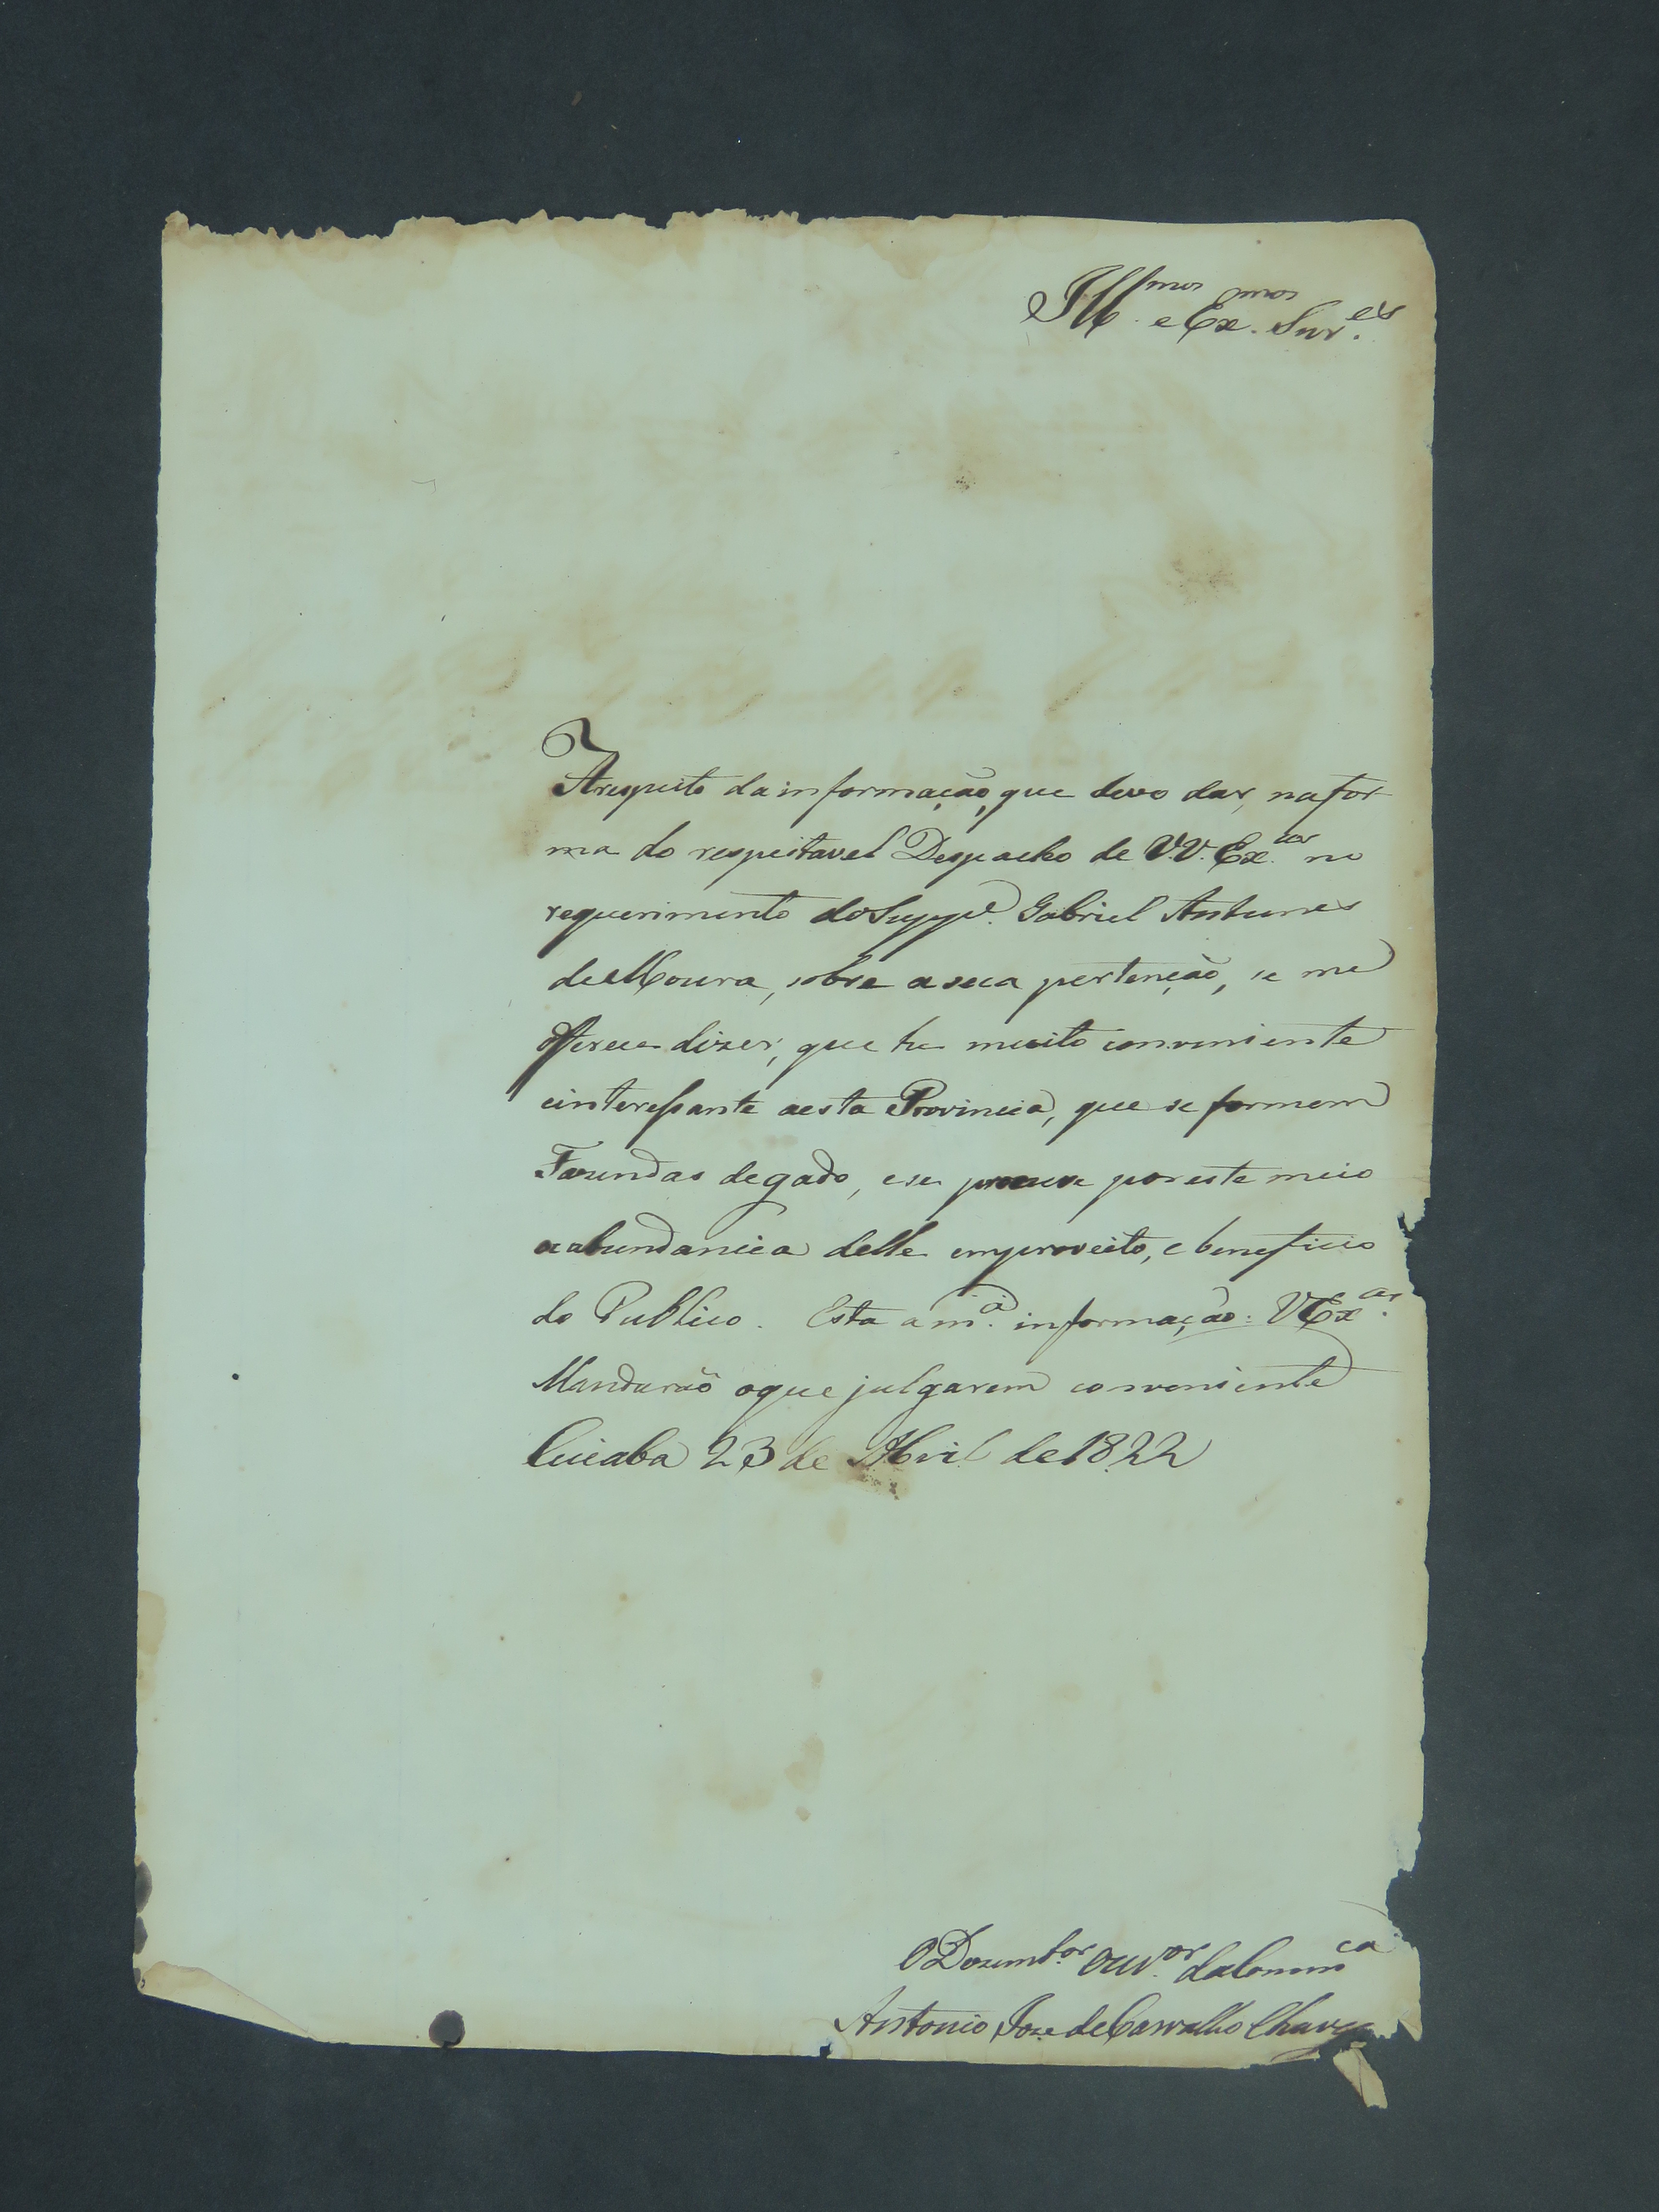 Ill.mos e Ex.mos Snr.es
A respeito da informação, que devo dar, na for
ma do respeitavel Despacho de V.V. Ex.cas no
requerimento do Supp.e Gabriel Antunes
de Moura, sobre a sua pertenção, se me
offerece dizer, que he muito conveniente
e interessante a esta Provincia, que se formem
Fazendas de gado, e se procure por este meio
a abundancia delle em proveito, e beneficio
do Publico. Esta a m.a informação: VVEx.cas
Mandarão o que julgarem conveniente
Cuiaba 23 de Abril de 1822
O Dezemb.or Ouv.or da Comm.ca
Antonio Joze de Carvalho Chaves